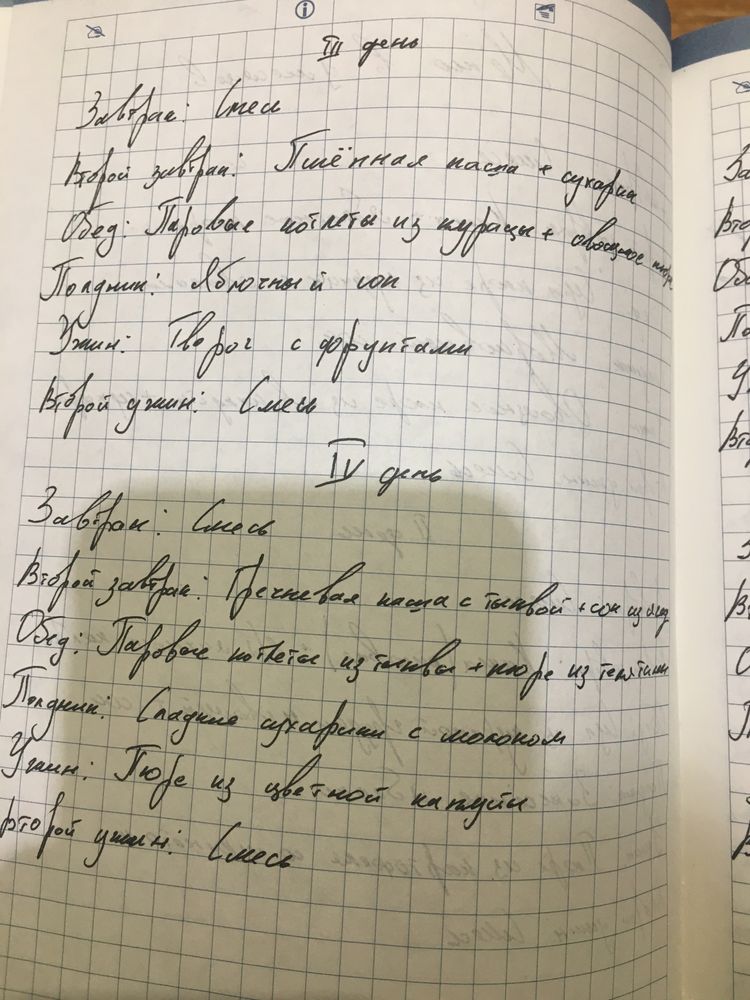 III день
Завтрак: Смесь
Второй завтрак: Пшённая каша + сухарики
Обед: Паровые котлеты из курицы + овощное пюре
Полдник: Яблочный сок
Ужин: Творог с фруктами
Второй ужин: Смесь
IV день
Завтрак: Смесь
Второй завтрак: Гречневая каша с тыквой + сок из ягод
Обед: Паровые котлеты из тыквы + пюре из телятины
Полдник: Сладкие сухарики с молоком
Ужин: Пюре из цветной капусты
Второй ужин: Смесь